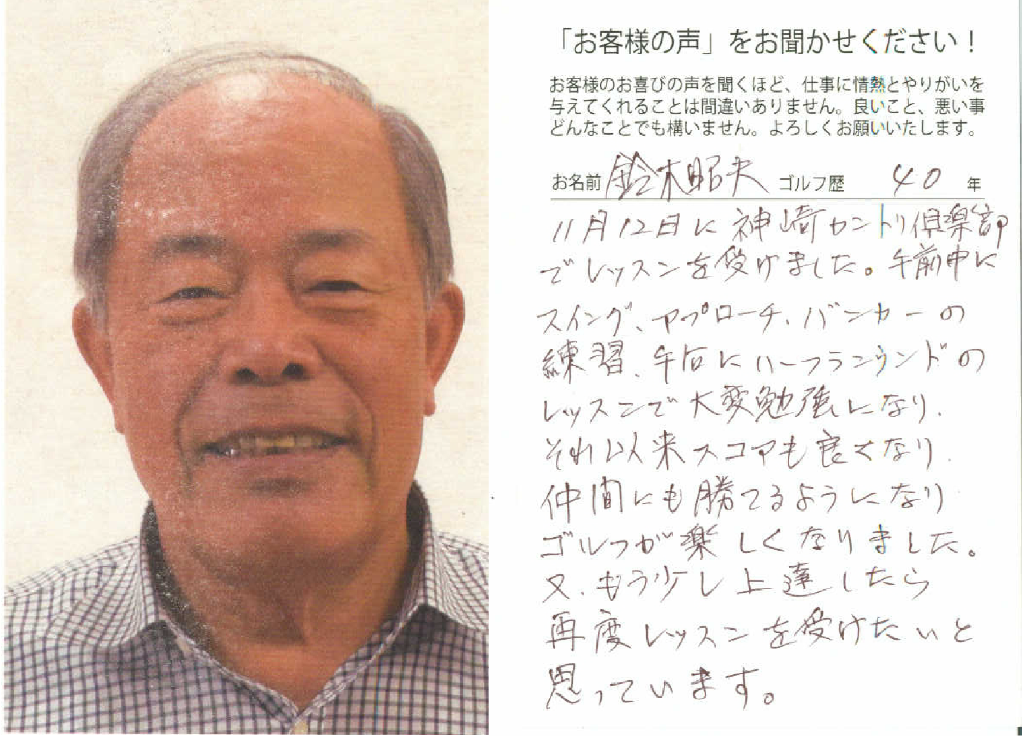 「お客様の声」をお聞かせください！
お客様のお喜びの声を聞くほど、仕事に情熱とやりがいを
与えてくれることは間違いありません。良いこと、悪い事
どんなことでも構いません。よろしくお願いいたします。
お名前 鈴木昭夫 ゴルフ歴 40 年
11月12日に神崎カントリ倶楽部
でレッスンを受けました。午前中に
スイング、アプローチ、バンカーの
練習、午后にハーフラウンドの
レッスンで大変勉強になり、
それ以来スコアも良くなり、
仲間にも勝てるようになり
ゴルフが楽しくなりました。
又、もう少し上達したら
再度レッスンを受けたいと
思っています。